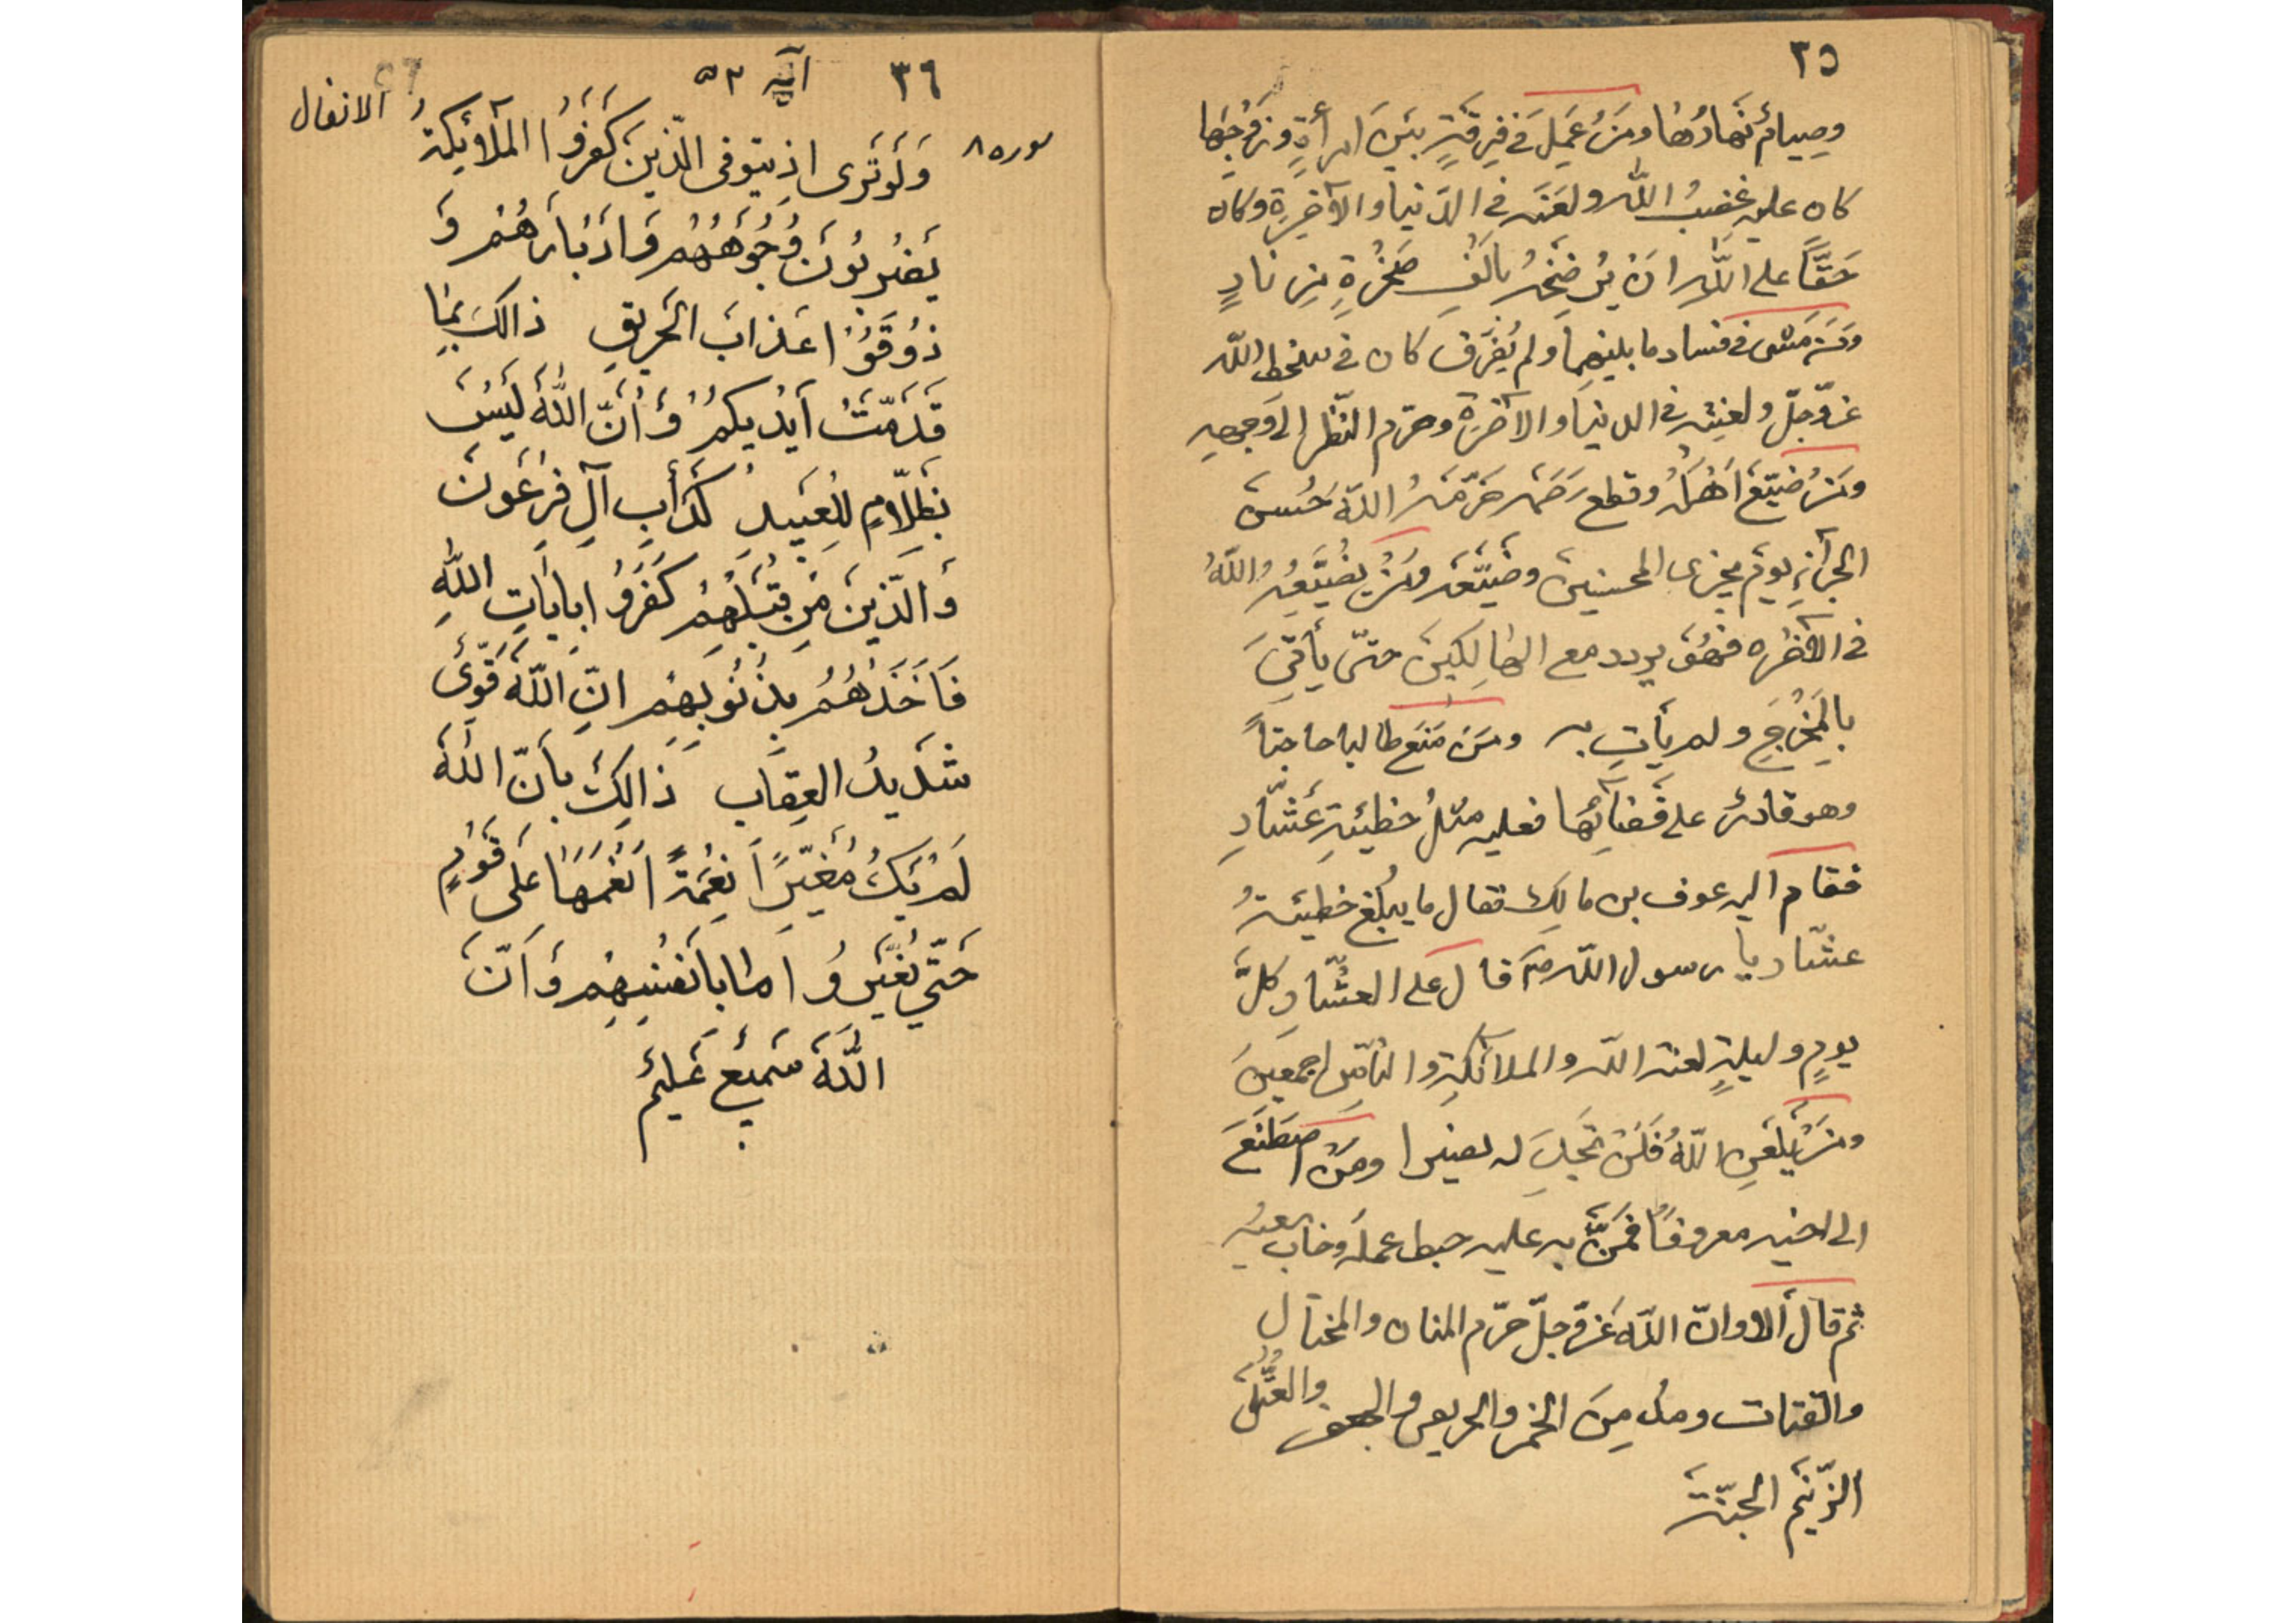 ٣٥
وصيام نهارها ومن عمل في فرقة بين امرأة وزوجها
كان عليه غضب الله ولعنه في الدنيا والآخرة وكان
حَقّاً على الله ان يرضخه بالف صخرة من نار
ومن مشى في فساد ما بينهما ولم يفرق كان في سخط الله
عزّوجلّ ولعنه في الدنيا والآخرة وحرم النّظر الى وجهه
ومن ضيّع اهله وقطع رحمه حرّمه الله حسن
الجزآء يوم يجزى المحسنين وضيّعه ومن يضيّعه الله
في الآخره فهو يردد مع الهالكين حتّى يأتي
بالمخرج ولم يأت به ومن منع طالبا حاجتاً
وهو قادر على قضآئها فعليه مثل خطيئة عشّار
فقام اليه عوف بن مالك فقال ما يبلغ خطيئة
عشّار يا رسول الله ص قال على العشّار كلّ
يوم وليلة لعنة الله والملائكة والنّاس اجمعين
ومن يلعن الله فلن تجد له نصيرا ومن اصطنع
الى اخيه معروفاً فمنّ به عليه حبط عمله وخاب سعيه
ثم قال ألا وانّ الله عزّوجلّ حرّم المنان والمختال
والقتات ومدمن الخمر والحريص والجعفر والعتلّ
الزّنيم الجنّة
٣٦ آية ٥٣
سوره ٨ الانفال
وَلَوتَرى اذ يتوفى الّذين كَفَرُوا الملآئِكةُ
يَضْرِبُونَ وُجُوهَهُمْ وَادْبَارَهُمْ وَ
ذُوقُوْا عَذابَ الحَريقِ ذالكَ بِمَا
قَدَّمَتْ اَيْديكُمْ وَ أَنّ اللّهَ لَيْسَ
بِظَلّامٍ لِلْعَبيدِ كَدَأبِ آلِ فِرْعَونَ
وَ الّذينَ مِن قَبْلِهِمْ كَفَرُوا بِاياتِ اللّهِ
فَاَخَذَهُمُ بِذُنُوبِهِمْ انّ اللّهَ قَوّىٌ
شَديدُ العِقابِ ذالِكَ بِاَنّ اللّهَ
لَمْ يَكُ مُغَيّراً نِعْمَةً اَنْعَمَهَا عَلَى قَوْمٍ
حَتّي يُغَيّرُوا مابِاَنفُسِهِمْ وَ اَنّ
اللّهَ سَميعٌ عَليمٌ